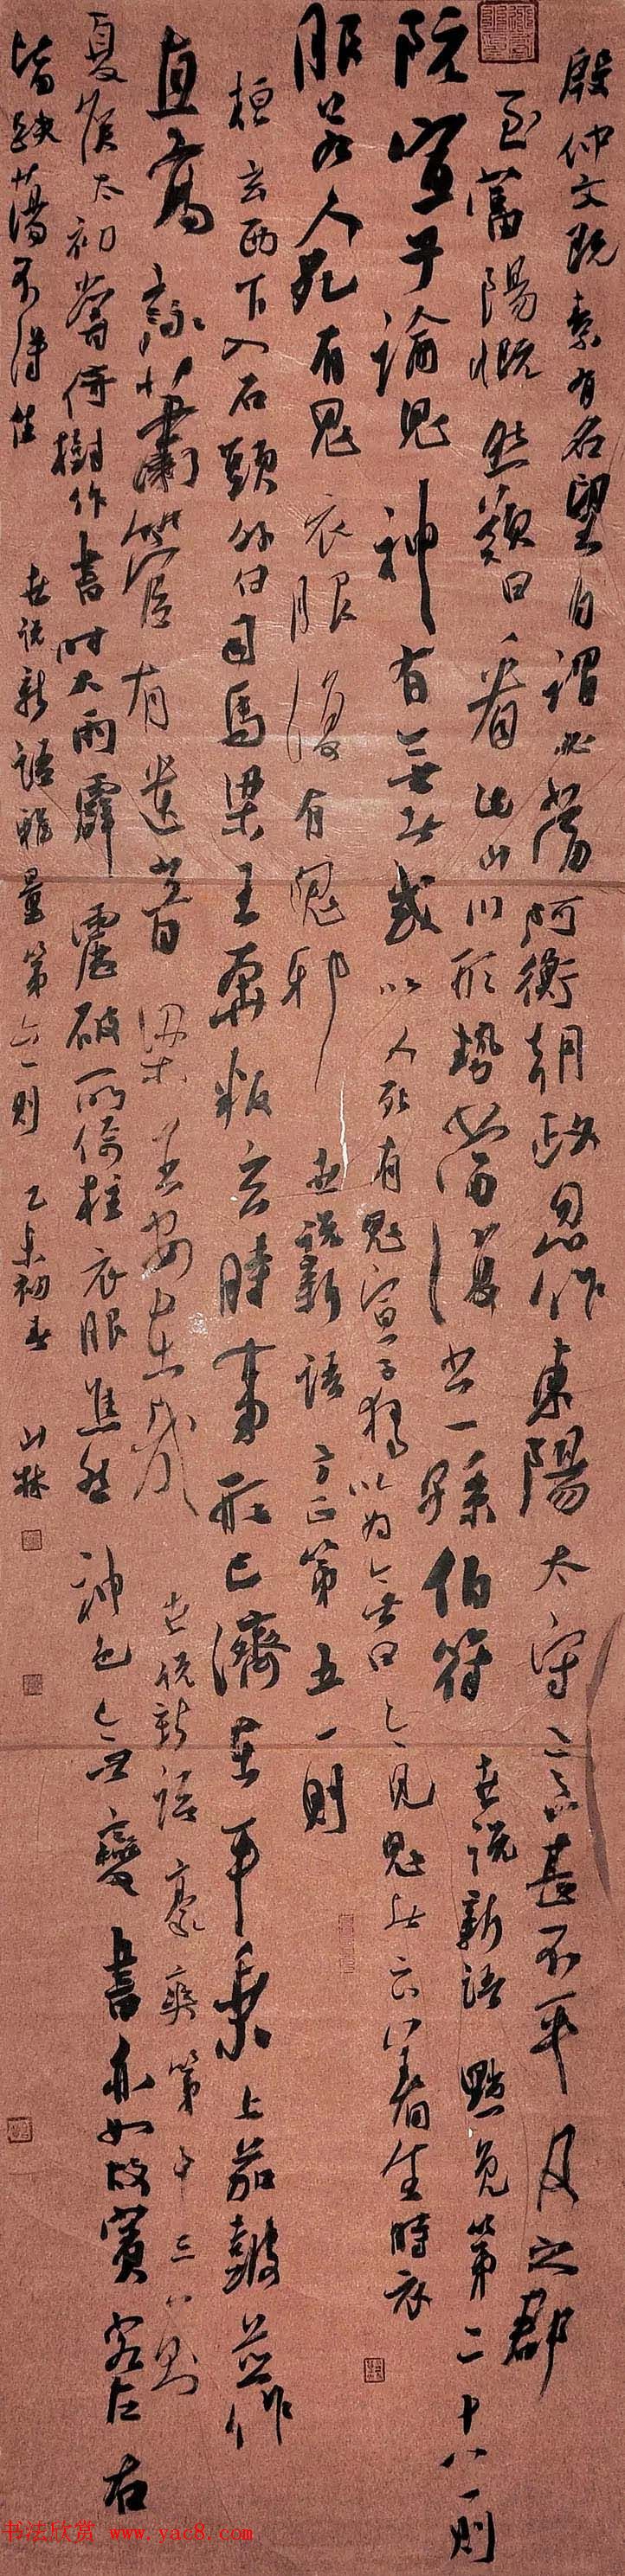 殷仲文既素有名望自謂必當阿衡朝政忽作東陽太守意甚不平及之郡
至富陽慨然歎曰看此山川形勢當復出一孫伯符 世說新語 黜免第二十八一則
阮宣子論鬼神有無者或以人死有鬼宣子獨以為無曰今見鬼者云著生時衣
服若人死有鬼衣服復有鬼邪 世說新語 方正第五一則
桓玄西下入石頭外白司馬梁王奔叛玄時事形已濟在平乘上笳鼓並作
直高詠簫管有遺音梁王安在哉 世說新語 豪爽第十三一則
夏侯太初嘗倚樹作書時大雨霹靂破所倚柱衣服焦然神色無變書亦如故賓客左右
皆跌蕩不得住 世說新語雅量第六一則 乙未初春 山林
书法欣赏 www.yac8.com